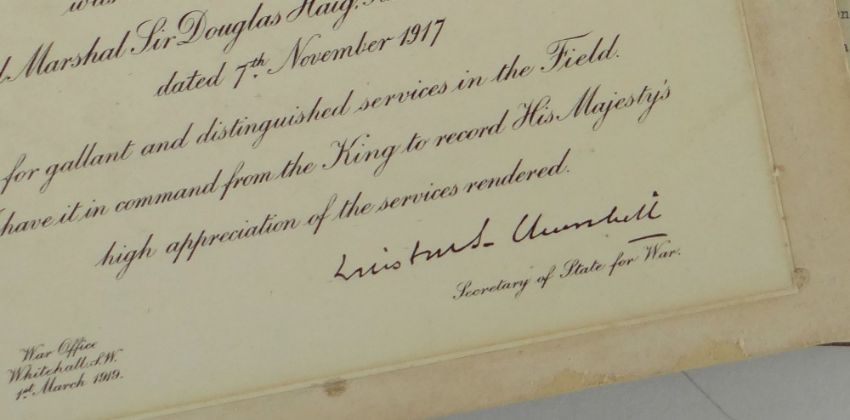 was
Marshal Sir Douglas Haig.
dated 7th November 1917
for gallant and distinguished services in the Field.
have it in command from the King to record His Majesty's
high appreciation of the services rendered.
Winston S. Churchill
Secretary of State for War.
War Office
Whitehall.S.W.
1st March 1919.